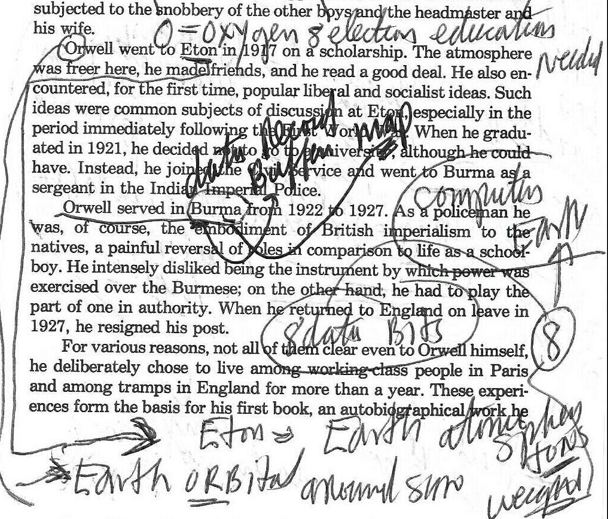 subjected to the snobbery of the other boys and the headmaster and
his wife.
O = Oxygen 8 electron education
needed
Orwell went to Eton in 1917 on a scholarship. The atmosphere
was freer here, he made friends, and he read a good deal. He also en-
countered, for the first time, popular liberal and socialist ideas. Such
ideas were common subjects of discussion at Eton, especially in the
period immediately following the First World War. When he gradu-
ated in 1921, he decided not to go to a university, although he could
have. Instead, he joined the Civil Service and went to Burma as a
sergeant in the Indian Imperial Police.
data Record
Buffer map
computer
Early
Orwell served in Burma from 1922 to 1927. As a policeman he
was, of course, the embodiment of British imperialism to the
natives, a painful reversal of roles in comparison to life as a school-
boy. He intensely disliked being the instrument by which power was
exercised over the Burmese; on the other hand, he had to play the
part of one in authority. When he returned to England on leave in
1927, he resigned his post.
8 data Bits
8
For various reasons, not all of them clear even to Orwell himself,
he deliberately chose to live among working-class people in Paris
and among tramps in England for more than a year. These experi-
ences form the basis for his first book, an autobiographical work he
Eton Earth atomic
TONS
Earth ORBital around sun
weight